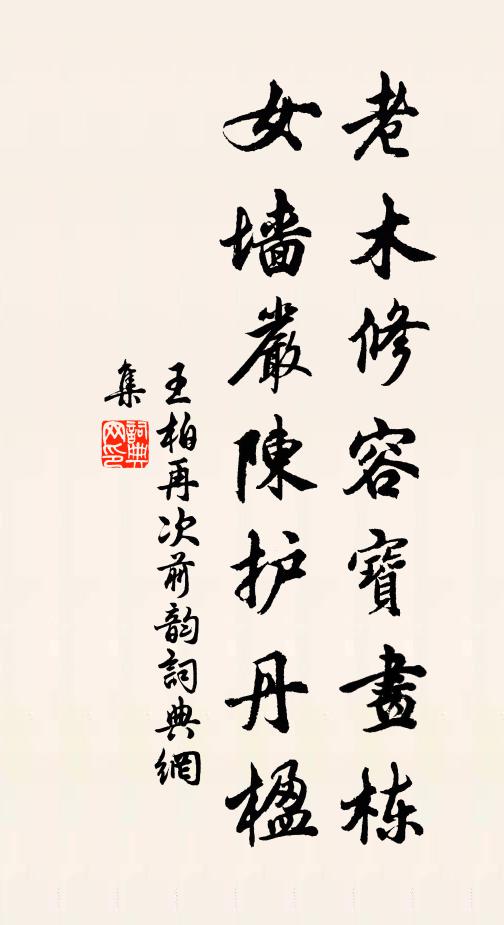 老木修容寶畫栋
女墙嚴陳护丹楹
王柏再次前韵詞典網
集
詞典网印